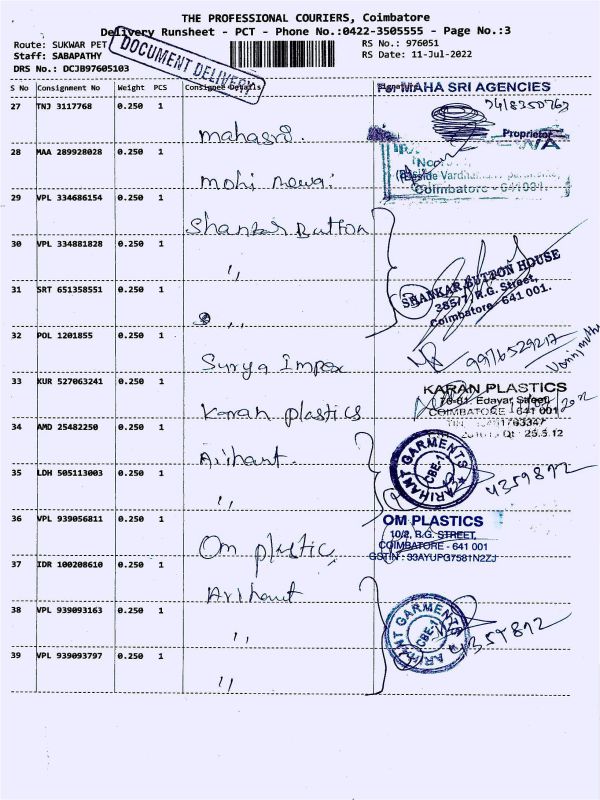 THE PROFESSIONAL COURIERS, Coimbatore
Delivery Runsheet - PCT - Phone No.:0422-3505555 - Page No.:3
Route: SUKWAR PET
RS No.: 976051
Staff: SABAPATHY
RS Date: 11-Jul-2022
DRS No.: DCJB97605103
DOCUMENT DELIVERY
S No Consignment No Weight PCS Consignee Details
27 TNJ 3117768 0.250 1 mahasri.
For MAHA SRI AGENCIES
Proprietor
28 MAA 289928028 0.250 1 mohi newai
Coimbatore - 641001
29 VPL 334686154 0.250 1 Shankar Button
30 VPL 334881828 0.250 1 ,,
SHANKAR BUTTON HOUSE
385/7, R.G. Street,
Coimbatore - 641 001.
31 SRT 651358551 0.250 1 ,,
32 POL 1201855 0.250 1 Surya Impex
9976529217
33 KUR 527063241 0.250 1 Karan plastics
KARAN PLASTICS
Edayar Street,
COIMBATORE - 641 001
34 AMD 25482250 0.250 1 Arihant
ARIHANT GARMENTS
CBE-1
4359892
35 LDH 505113003 0.250 1 ,,
36 VPL 939056811 0.250 1 Om plastic
OM PLASTICS
10/2, R.G. STREET,
COIMBATORE - 641 001
GSTIN : 33AYUPG7581N2ZJ
37 IDR 100208610 0.250 1 Arihant
38 VPL 939093163 0.250 1 ,,
ARIHANT GARMENTS
CBE-1
4359892
39 VPL 939093797 0.250 1 ,,